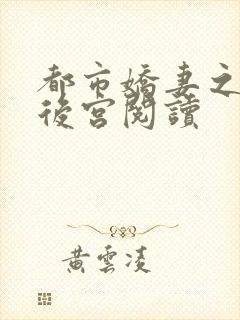 都市嬌妻之
後宮閱讀
黃雲凌